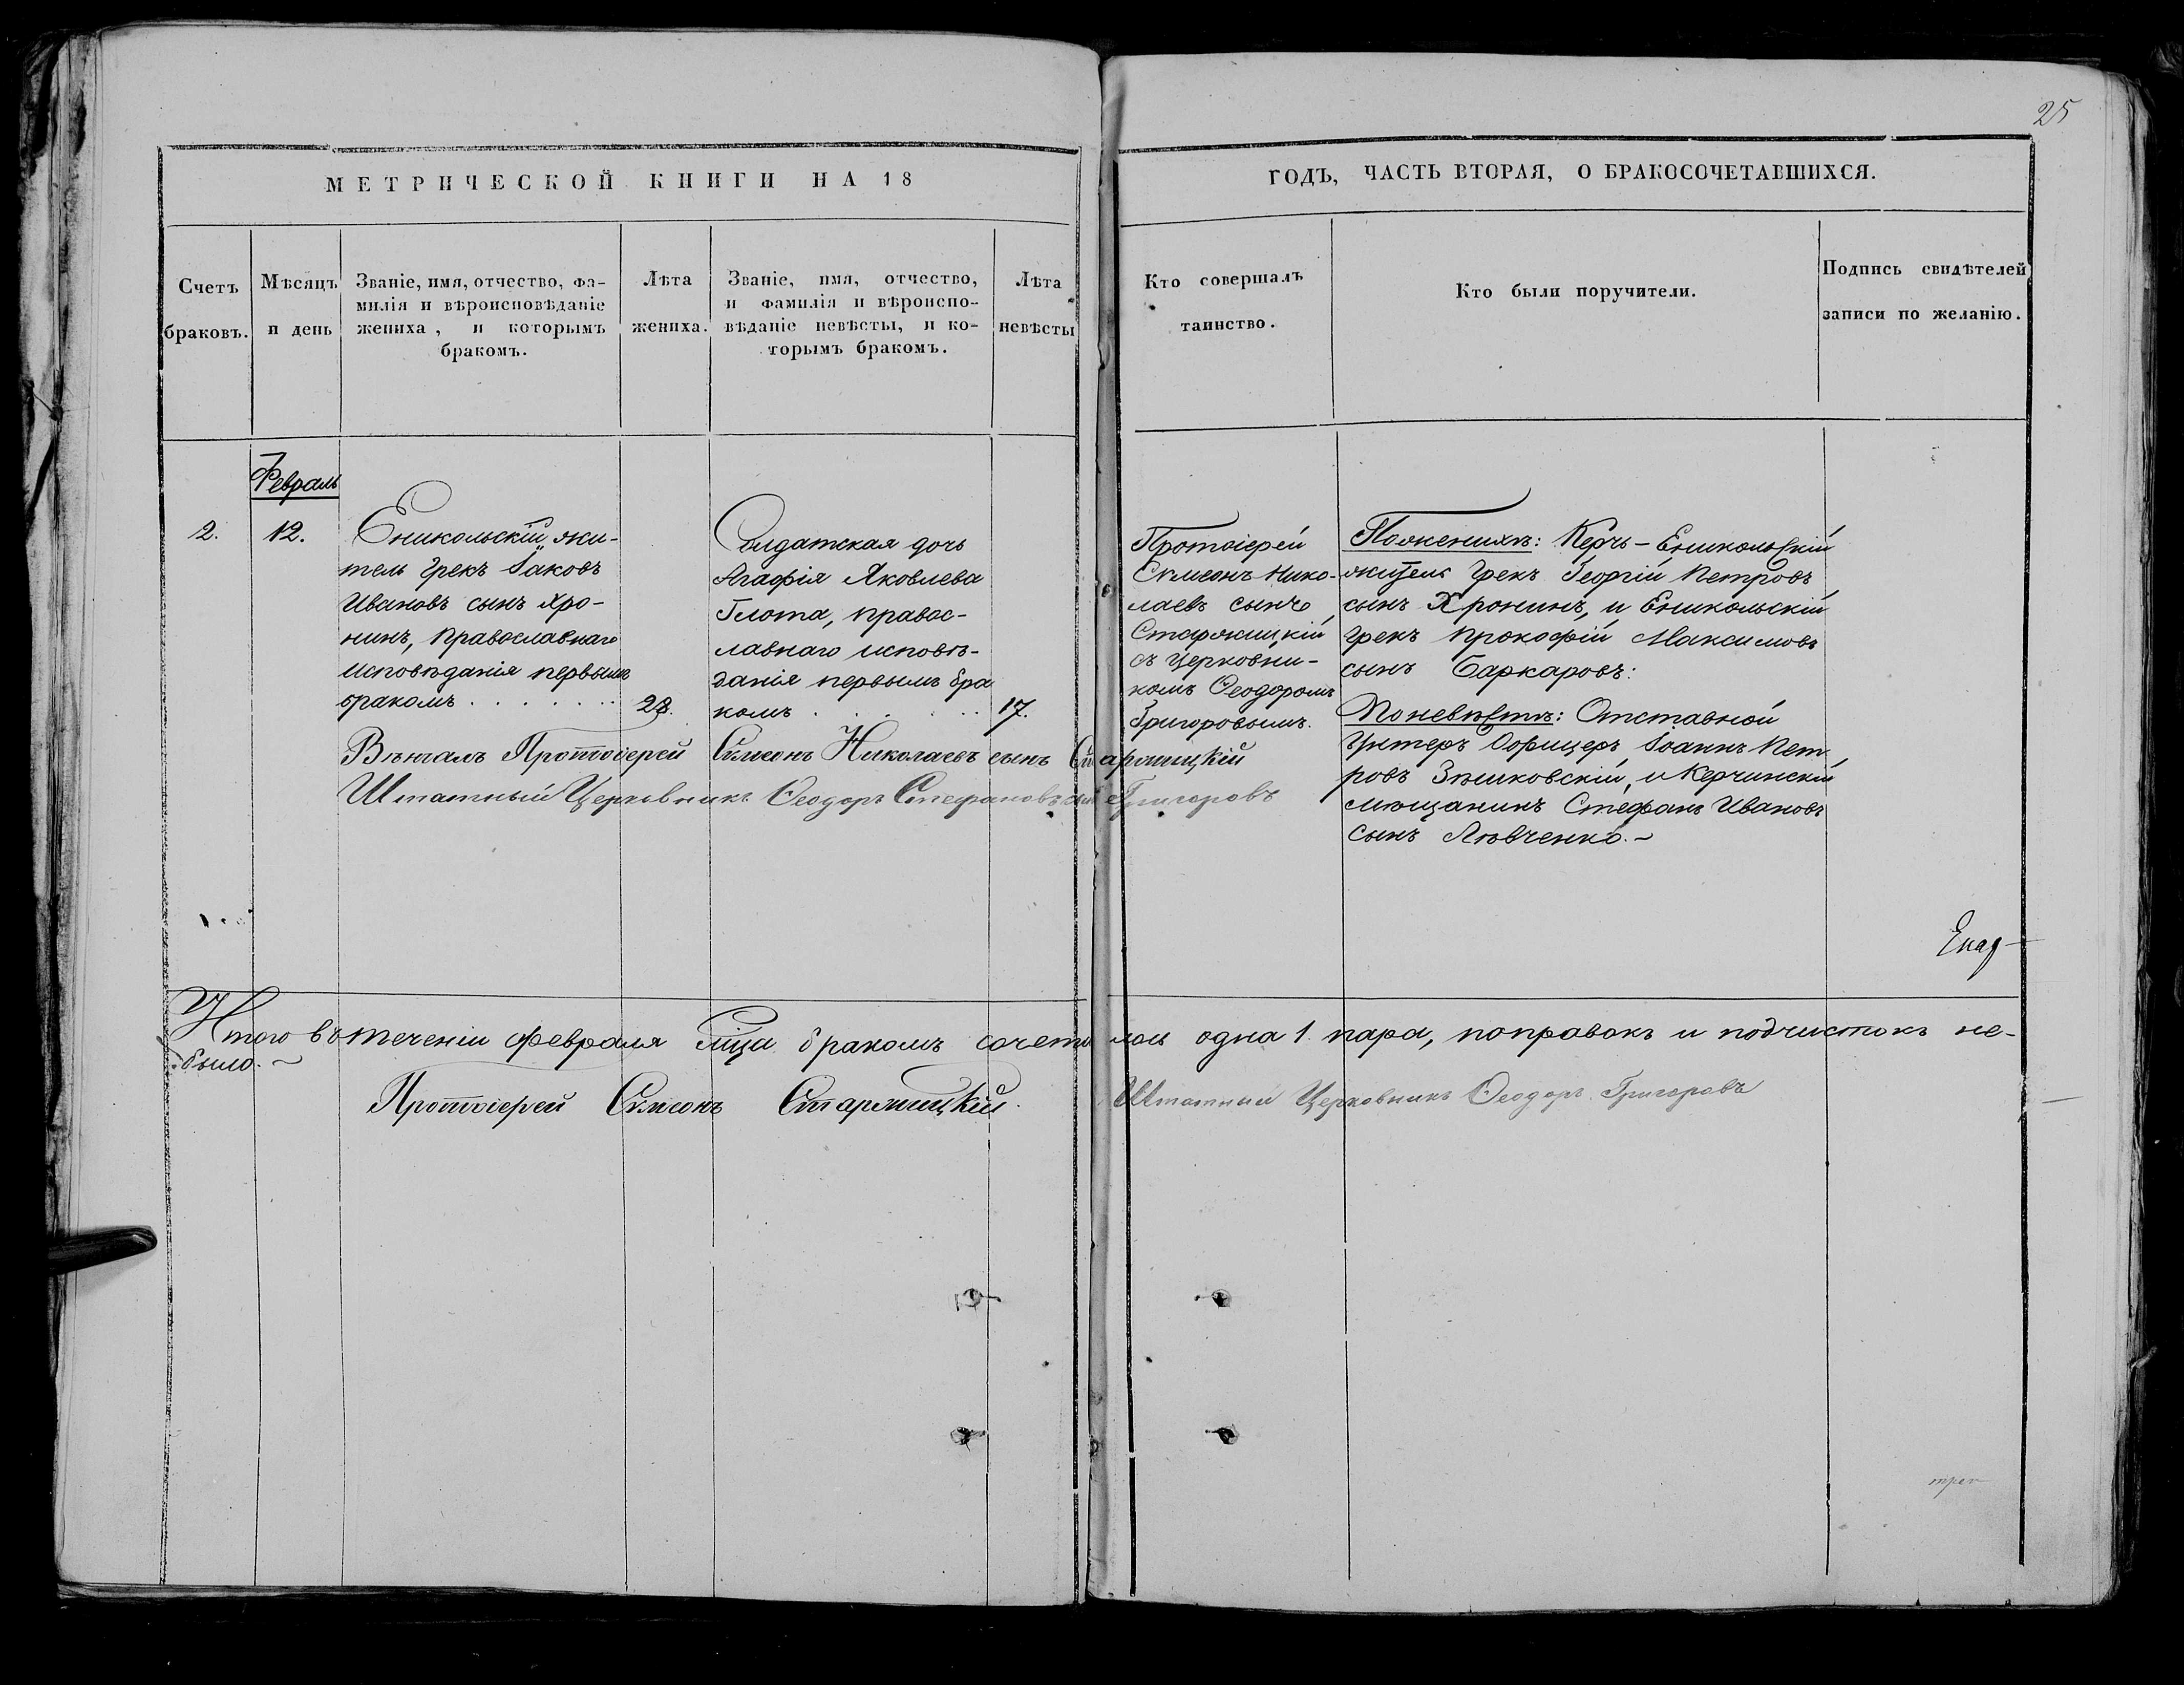 25
МЕТРИЧЕСКОЙ КНИГИ НА 18
ГОДЪ, ЧАСТЬ ВТОРАЯ, О БРАКОСОЧЕТАВШИХСЯ.
Счетъ
браковъ.
Мѣсяцъ
и день
Званіе, имя, отчество, фа-
милія и вѣроисповѣданіе
жениха, и которымъ
бракомъ.
Лѣта
жениха.
Званіе, имя, отчество,
и фамилія и вѣроиспо-
вѣданіе невѣсты, и ко-
торымъ бракомъ.
Лѣта
невѣсты
Кто совершалъ
таинство.
Кто были поручители.
Подпись свидѣтелей
записи по желанію.
Февраль
2.
12.
Еникольскій жи-
тель Грекъ Іаковъ
Ивановъ сынъ Хро-
нинъ, православнаго
исповѣданія первымъ
бракомъ . . . . . . .
28.
Солдатская дочь
Агафія Яковлева
Глота, правос-
лавнаго исповѣ-
данія первымъ бра
комъ . . . . . .
17.
Протоіерей
Симеонъ Нико-
лаевъ сынъ
Старжицкій
съ Церковни-
комъ Ѳеодоромъ
Григоровымъ.
Поженихѣ: Керчь-Еникольскій
житель Грекъ Георгій Петровъ
сынъ Хронинъ, и Еникольскій
Грекъ Прокофій Максимовъ
сынъ Баркаровъ:
Поневѣстѣ: Отставной
Унтеръ Оофицеръ Іоаннъ Пет
ровъ , и Керчинскій
мѣщанинъ Стефанъ Ивановъ
сынъ Лѣвченко.~
Вѣнчалъ Протоіерей Симеонъ Николаевъ сынъ Старжицкій
Штатный Церковникъ Ѳеодоръ Стефановъ сынъ Григоровъ
Итого въ теченіи февраля мца бракомъ сочеталось одна 1 пара, поправокъ и подчистокъ не-
было.~
Протоіерей Симеонъ Старжицкій.
Штатный Церковникъ Ѳеодоръ Григоровъ